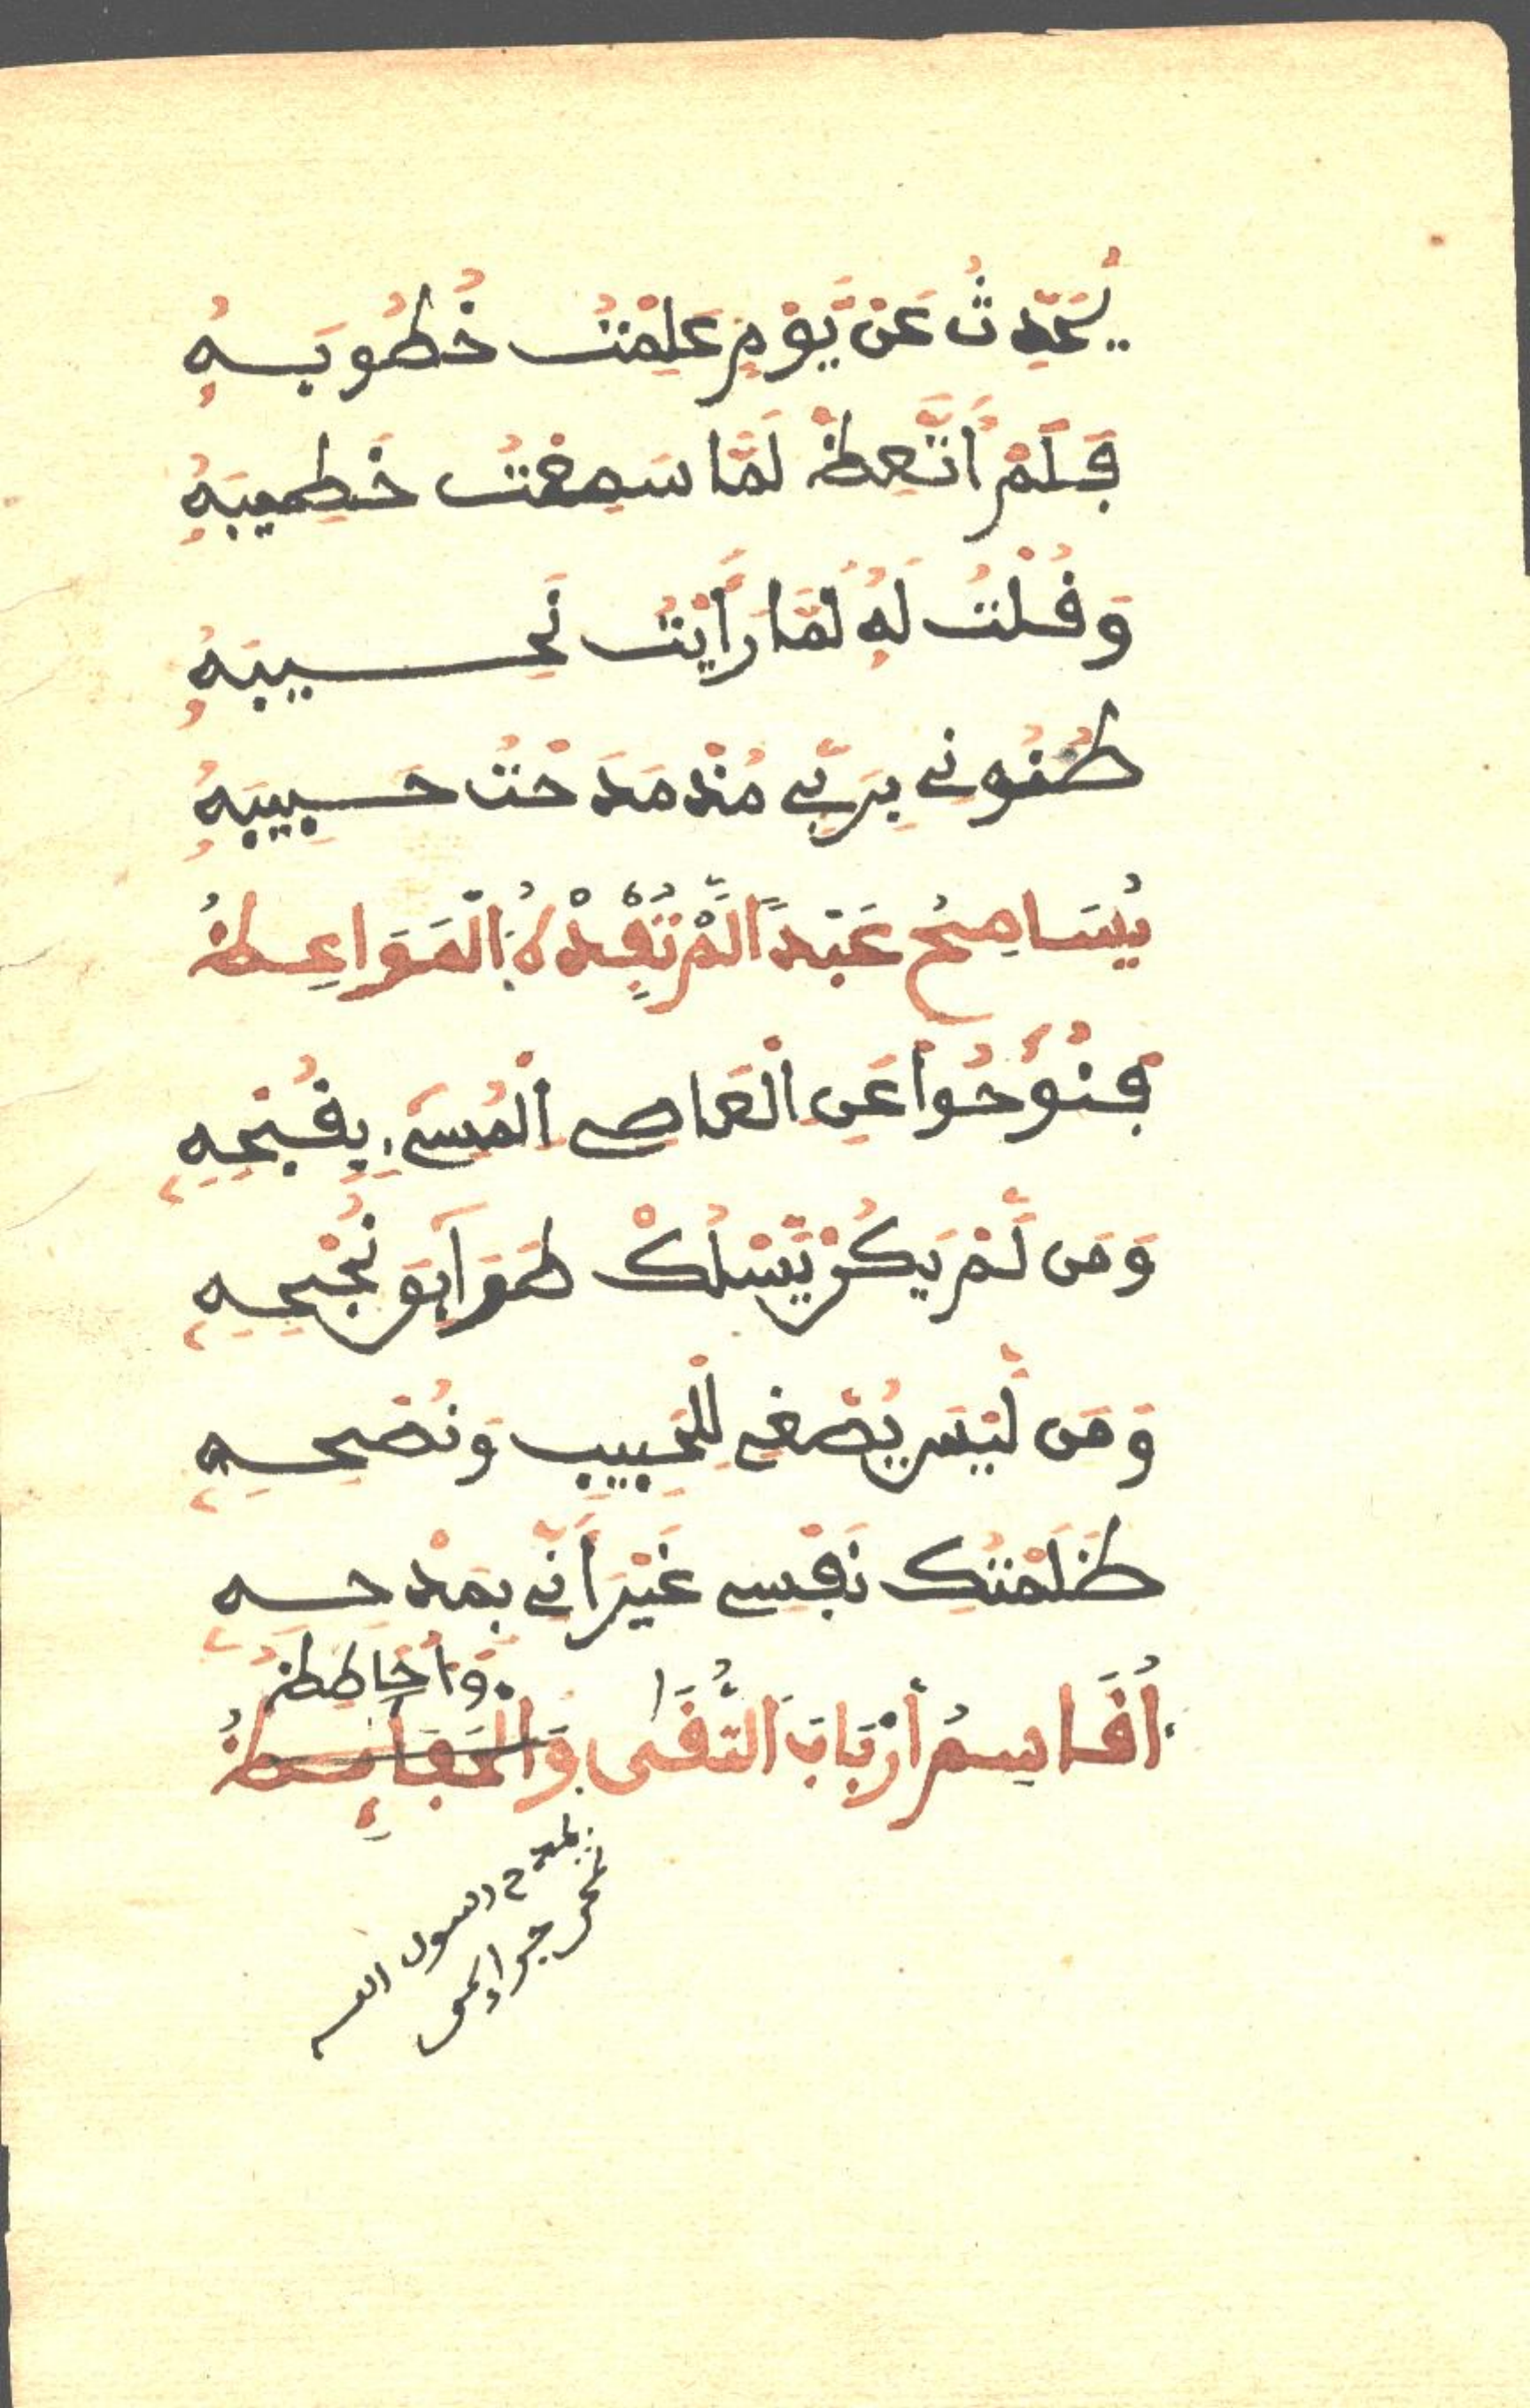 يُحَدِّثُ عَنْ يَّوْمٍ عَلِمْتُ خُطُوبَهُ
فَلَمْ أَتَّعِظْ لَمَّا سَمِعْتُ خَطِيبَهُ
وَقُلْتُ لَهُ لَمَّا رَأَيْتُ نَحِيبَهُ
ظُنُونِي بِرَبِّي مُنْذُ مَدَحْتُ حَبِيبَهُ
يُسَامِحُ عَبْدًا لَّمْ تُفِدْهُ الْمَوَاعِظُ
فَنُوحُوا عَنِ الْعَاصِي الْمُسِيءِ بِقُبْحِهِ
وَمَن لَّمْ يَكُنْ يَّسْلُكْ طَوَابِقَ نُجْحِهِ
وَمَن لَّيْسَ يُصْغِي لِلْحَبِيبِ وَنُصْحِهِ
ظَلَمْتُكِ نَفْسِي غَيْرَ أَنِّي بِمَدْحِهِ
أُقَاسِمُ أَرْبَابَ التُّقَى وَأُحَاظِظُ
بمدح رسول الله